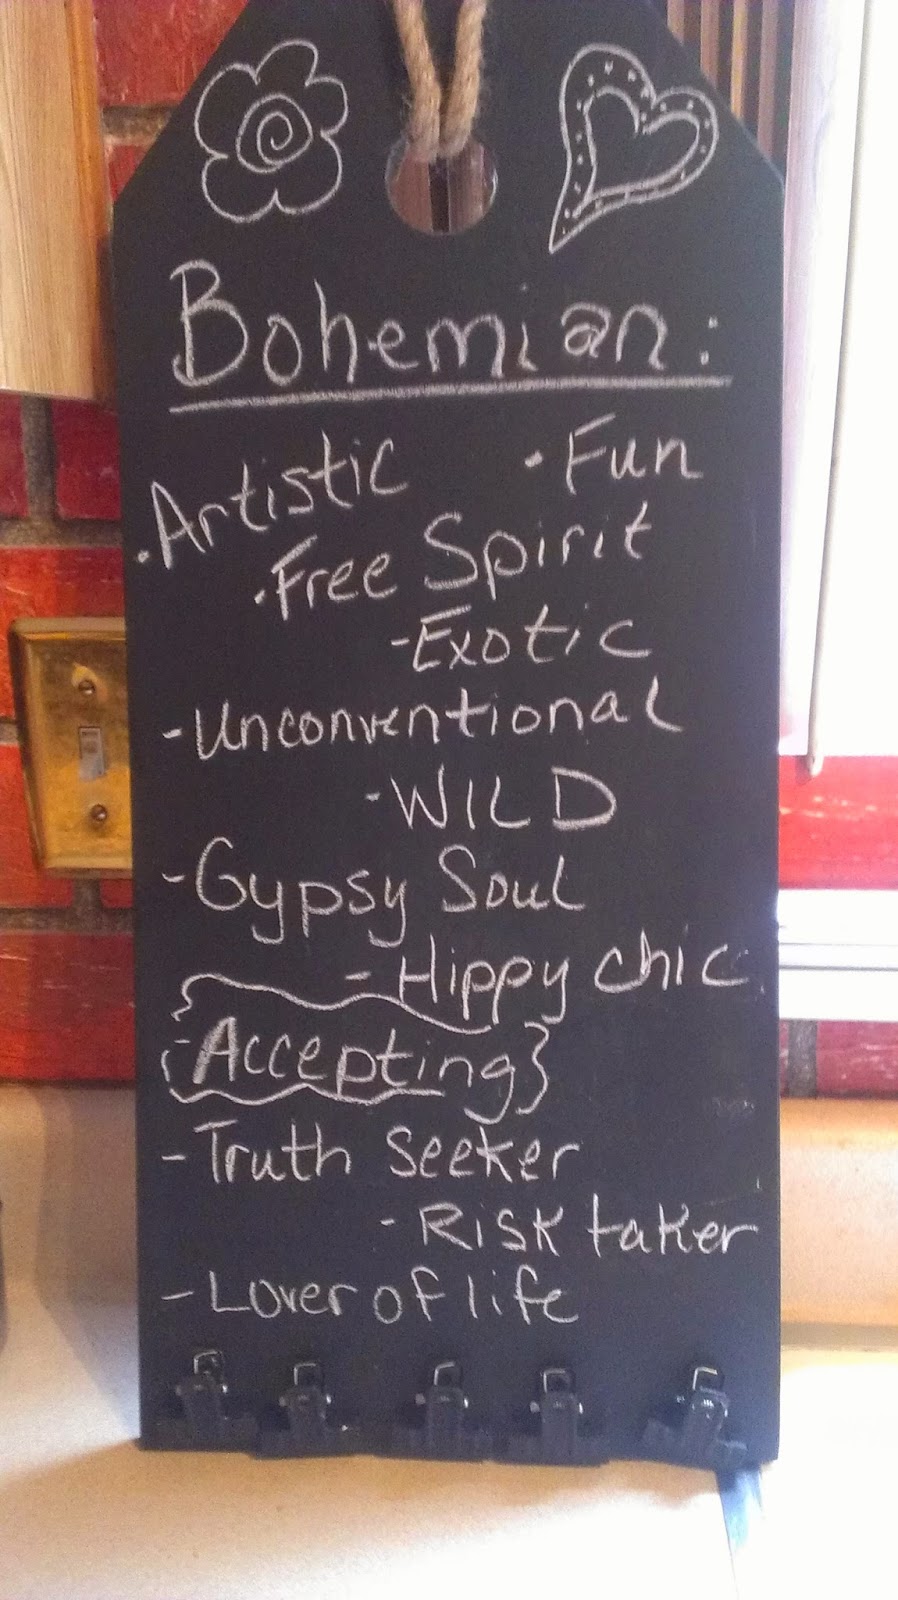 Bohemian:
·Artistic ·Fun
·Free Spirit
-Exotic
-Unconventional
-WILD
-Gypsy Soul
-Hippy chic
{-Accepting}
-Truth Seeker
-Risk taker
-Lover of life